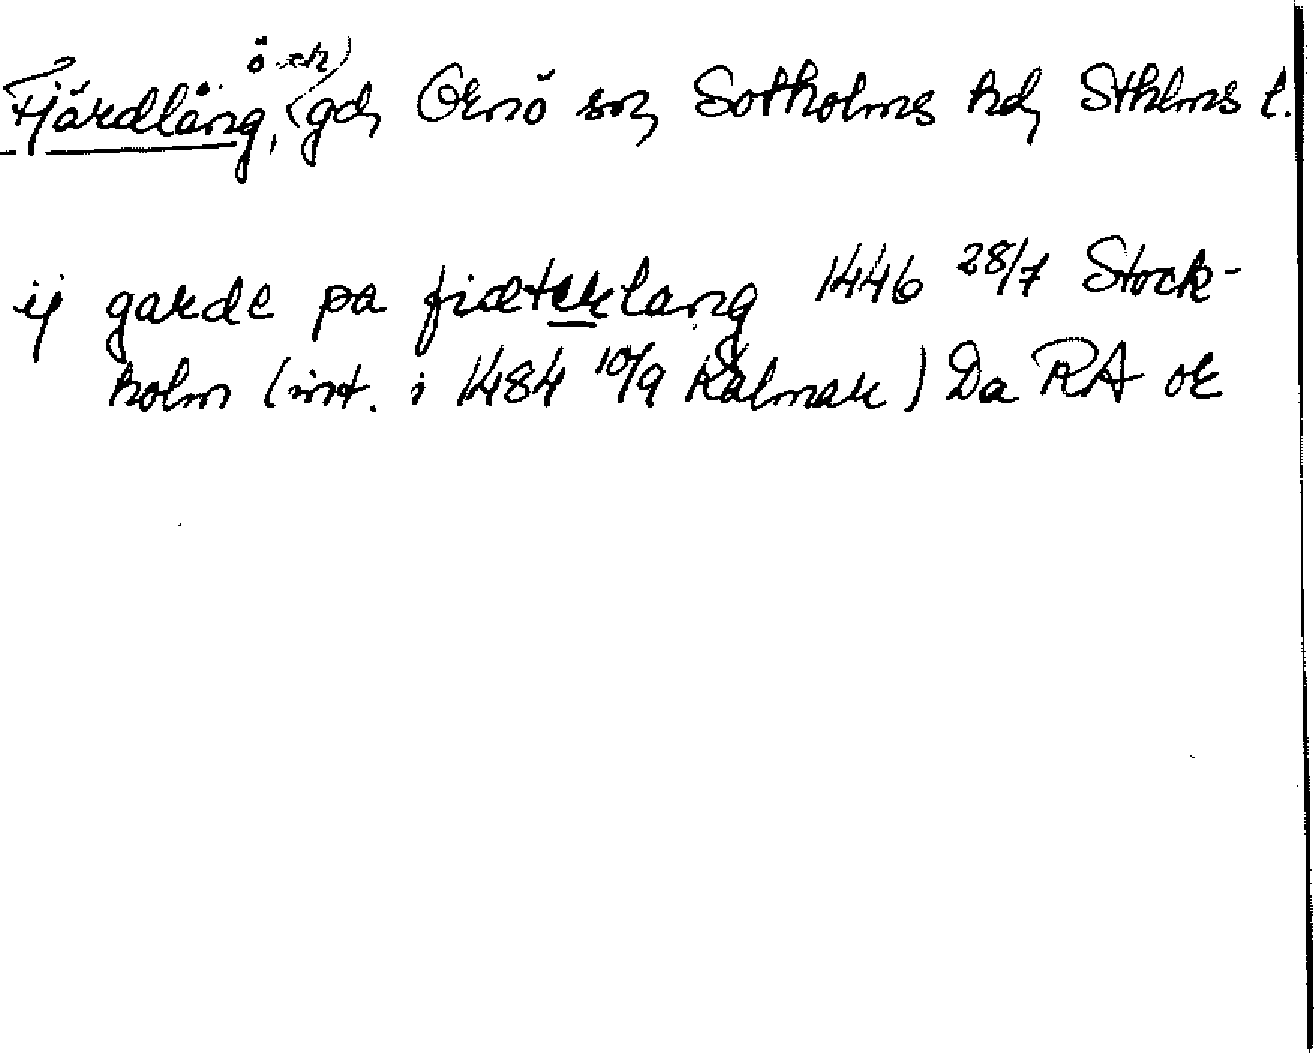 Fjärdlång, (ö och) gd, Ornö sn, Sotholms hd, Sthlms l.
ij garde pa fiæterlang 1446 28/7 Stock-
holm (int. i 1484 10/9 Kalmar) Da RA or